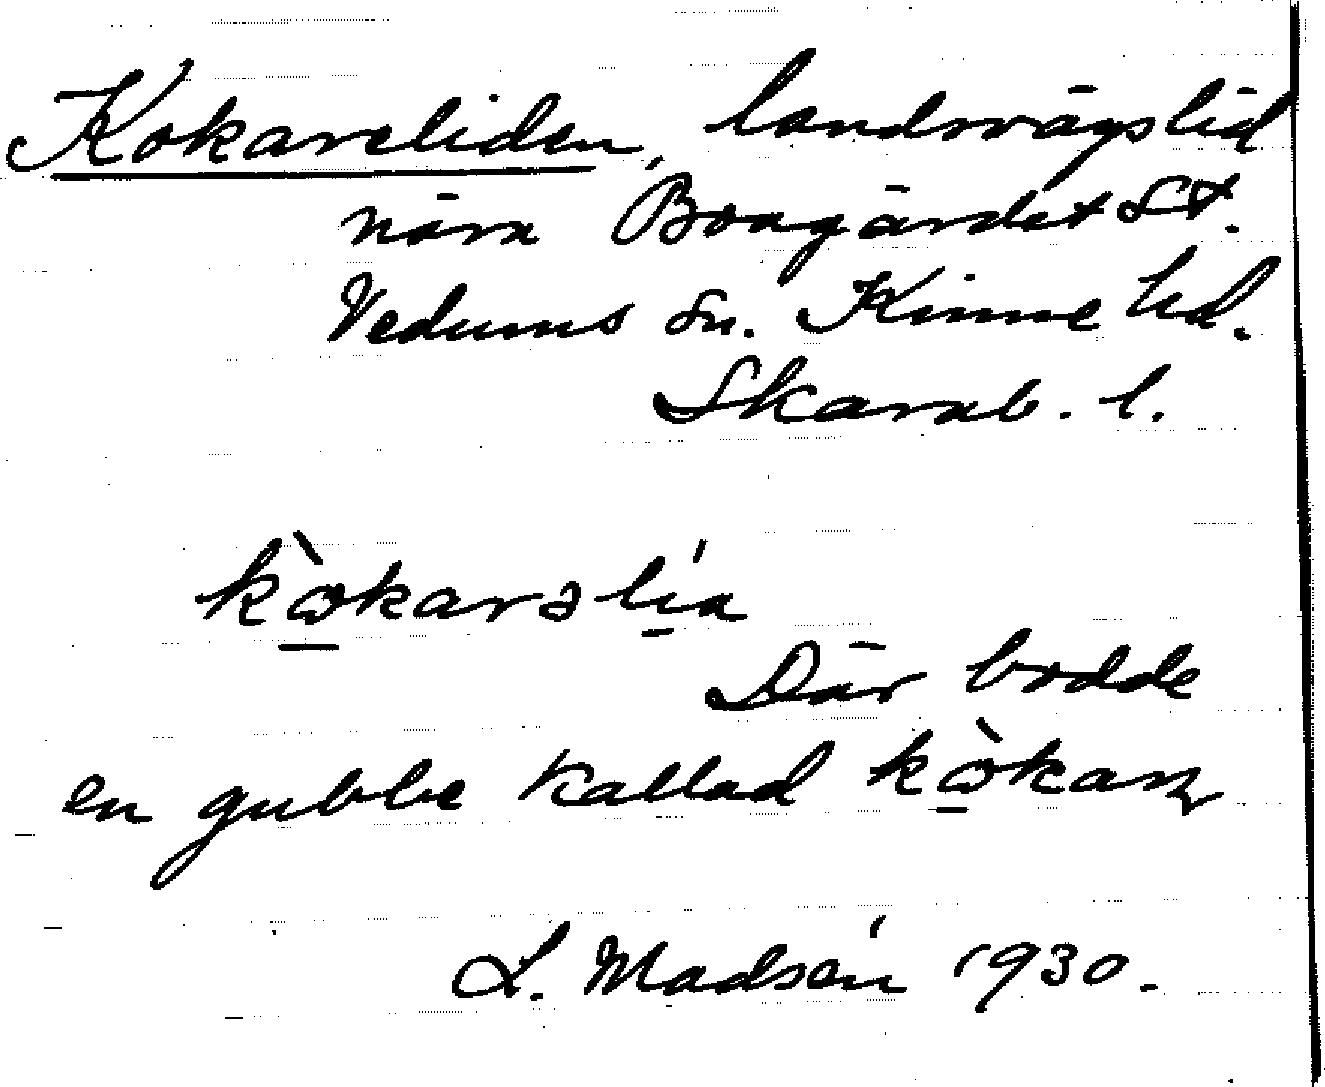 Kokareliden, landsvägslid
nära Bongärdet St.
Vedums sn. Kinne hd.
Skarab. l.
kò̱karəlí̱a
Där bodde
en gubbe kallad kò̱karn
L. Madsén 1930.